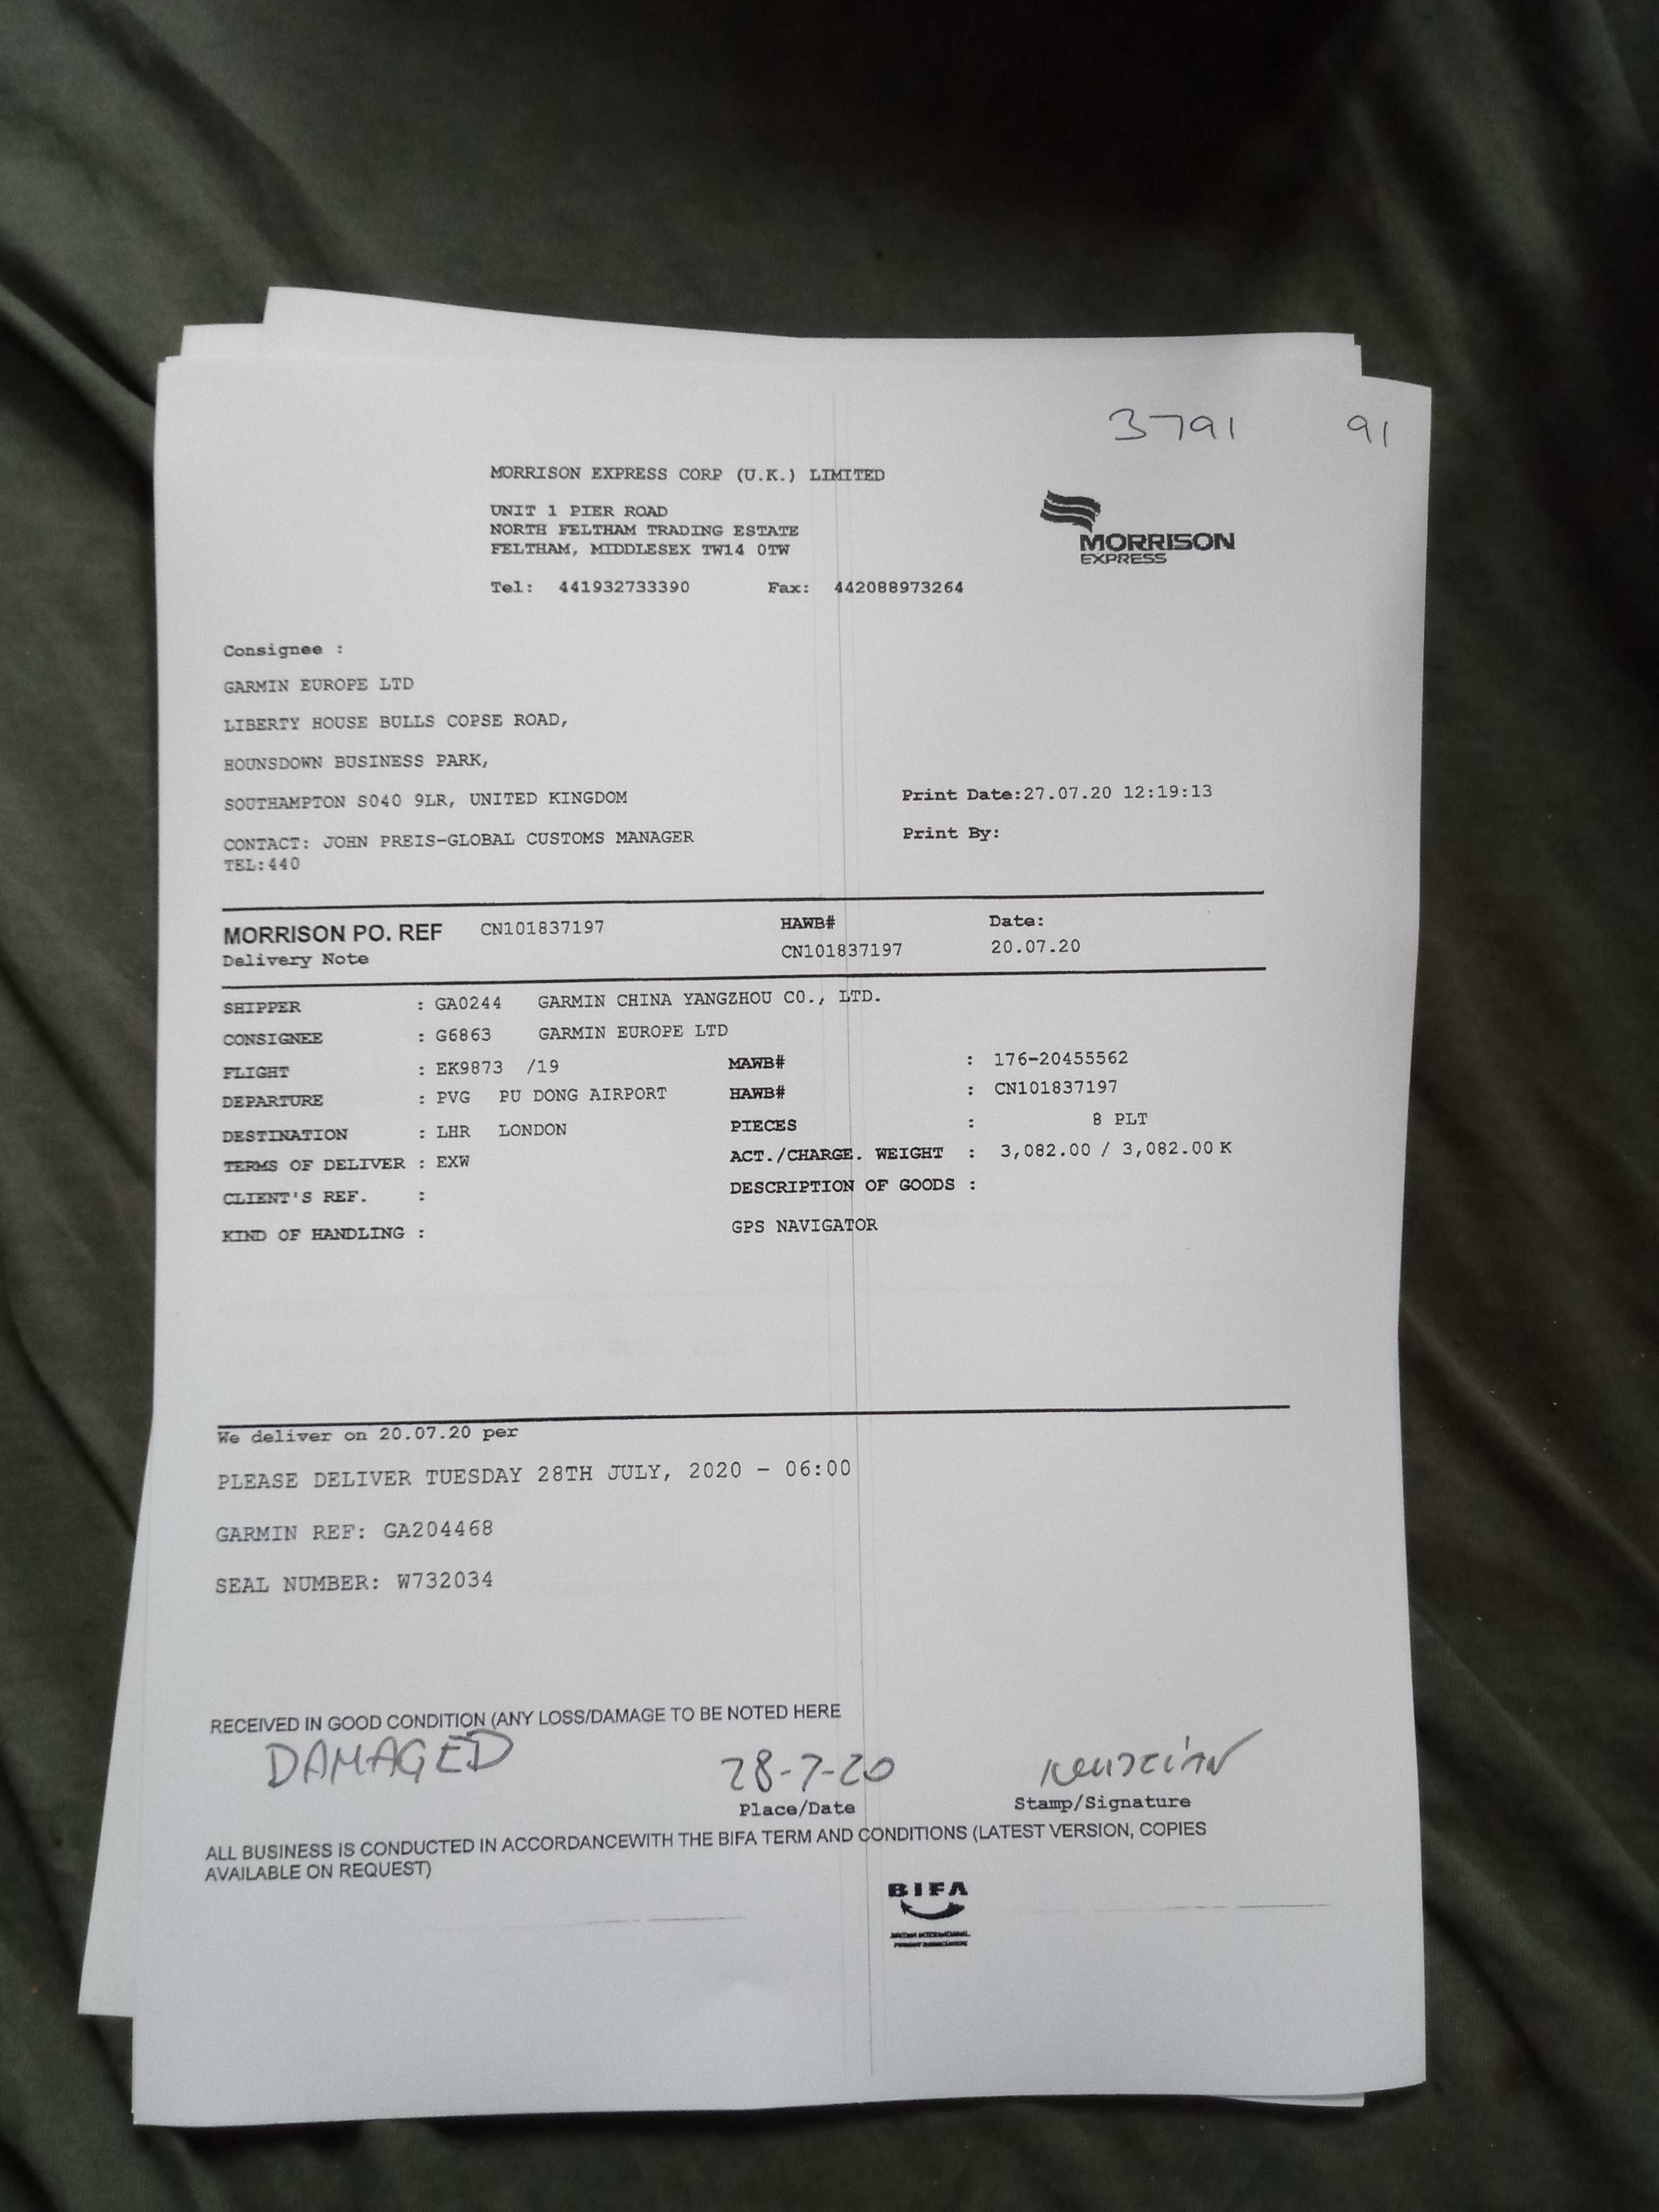 3791 91
MORRISON EXPRESS CORP (U.K.) LIMITED
UNIT 1 PIER ROAD
NORTH FELTHAM TRADING ESTATE
FELTHAM, MIDDLESEX TW14 0TW
MORRISON
EXPRESS
Tel: 441932733390 Fax: 442088973264
Consignee :
GARMIN EUROPE LTD
LIBERTY HOUSE BULLS COPSE ROAD,
HOUNSDOWN BUSINESS PARK,
SOUTHAMPTON S040 9LR, UNITED KINGDOM
Print Date:27.07.20 12:19:13
CONTACT: JOHN PREIS-GLOBAL CUSTOMS MANAGER
Print By:
TEL:440
MORRISON PO. REF CN101837197 HAWB# Date:
Delivery Note CN101837197 20.07.20
SHIPPER : GA0244 GARMIN CHINA YANGZHOU CO., LTD.
CONSIGNEE : G6863 GARMIN EUROPE LTD
FLIGHT : EK9873 /19 MAWB# : 176-20455562
DEPARTURE : PVG PU DONG AIRPORT HAWB# : CN101837197
DESTINATION : LHR LONDON PIECES : 8 PLT
TERMS OF DELIVER : EXW ACT./CHARGE. WEIGHT : 3,082.00 / 3,082.00 K
CLIENT'S REF. : DESCRIPTION OF GOODS :
KIND OF HANDLING : GPS NAVIGATOR
We deliver on 20.07.20 per
PLEASE DELIVER TUESDAY 28TH JULY, 2020 - 06:00
GARMIN REF: GA204468
SEAL NUMBER: W732034
RECEIVED IN GOOD CONDITION (ANY LOSS/DAMAGE TO BE NOTED HERE
DAMAGED 28-7-20
Place/Date Stamp/Signature
ALL BUSINESS IS CONDUCTED IN ACCORDANCEWITH THE BIFA TERM AND CONDITIONS (LATEST VERSION, COPIES
AVAILABLE ON REQUEST)
BIFA